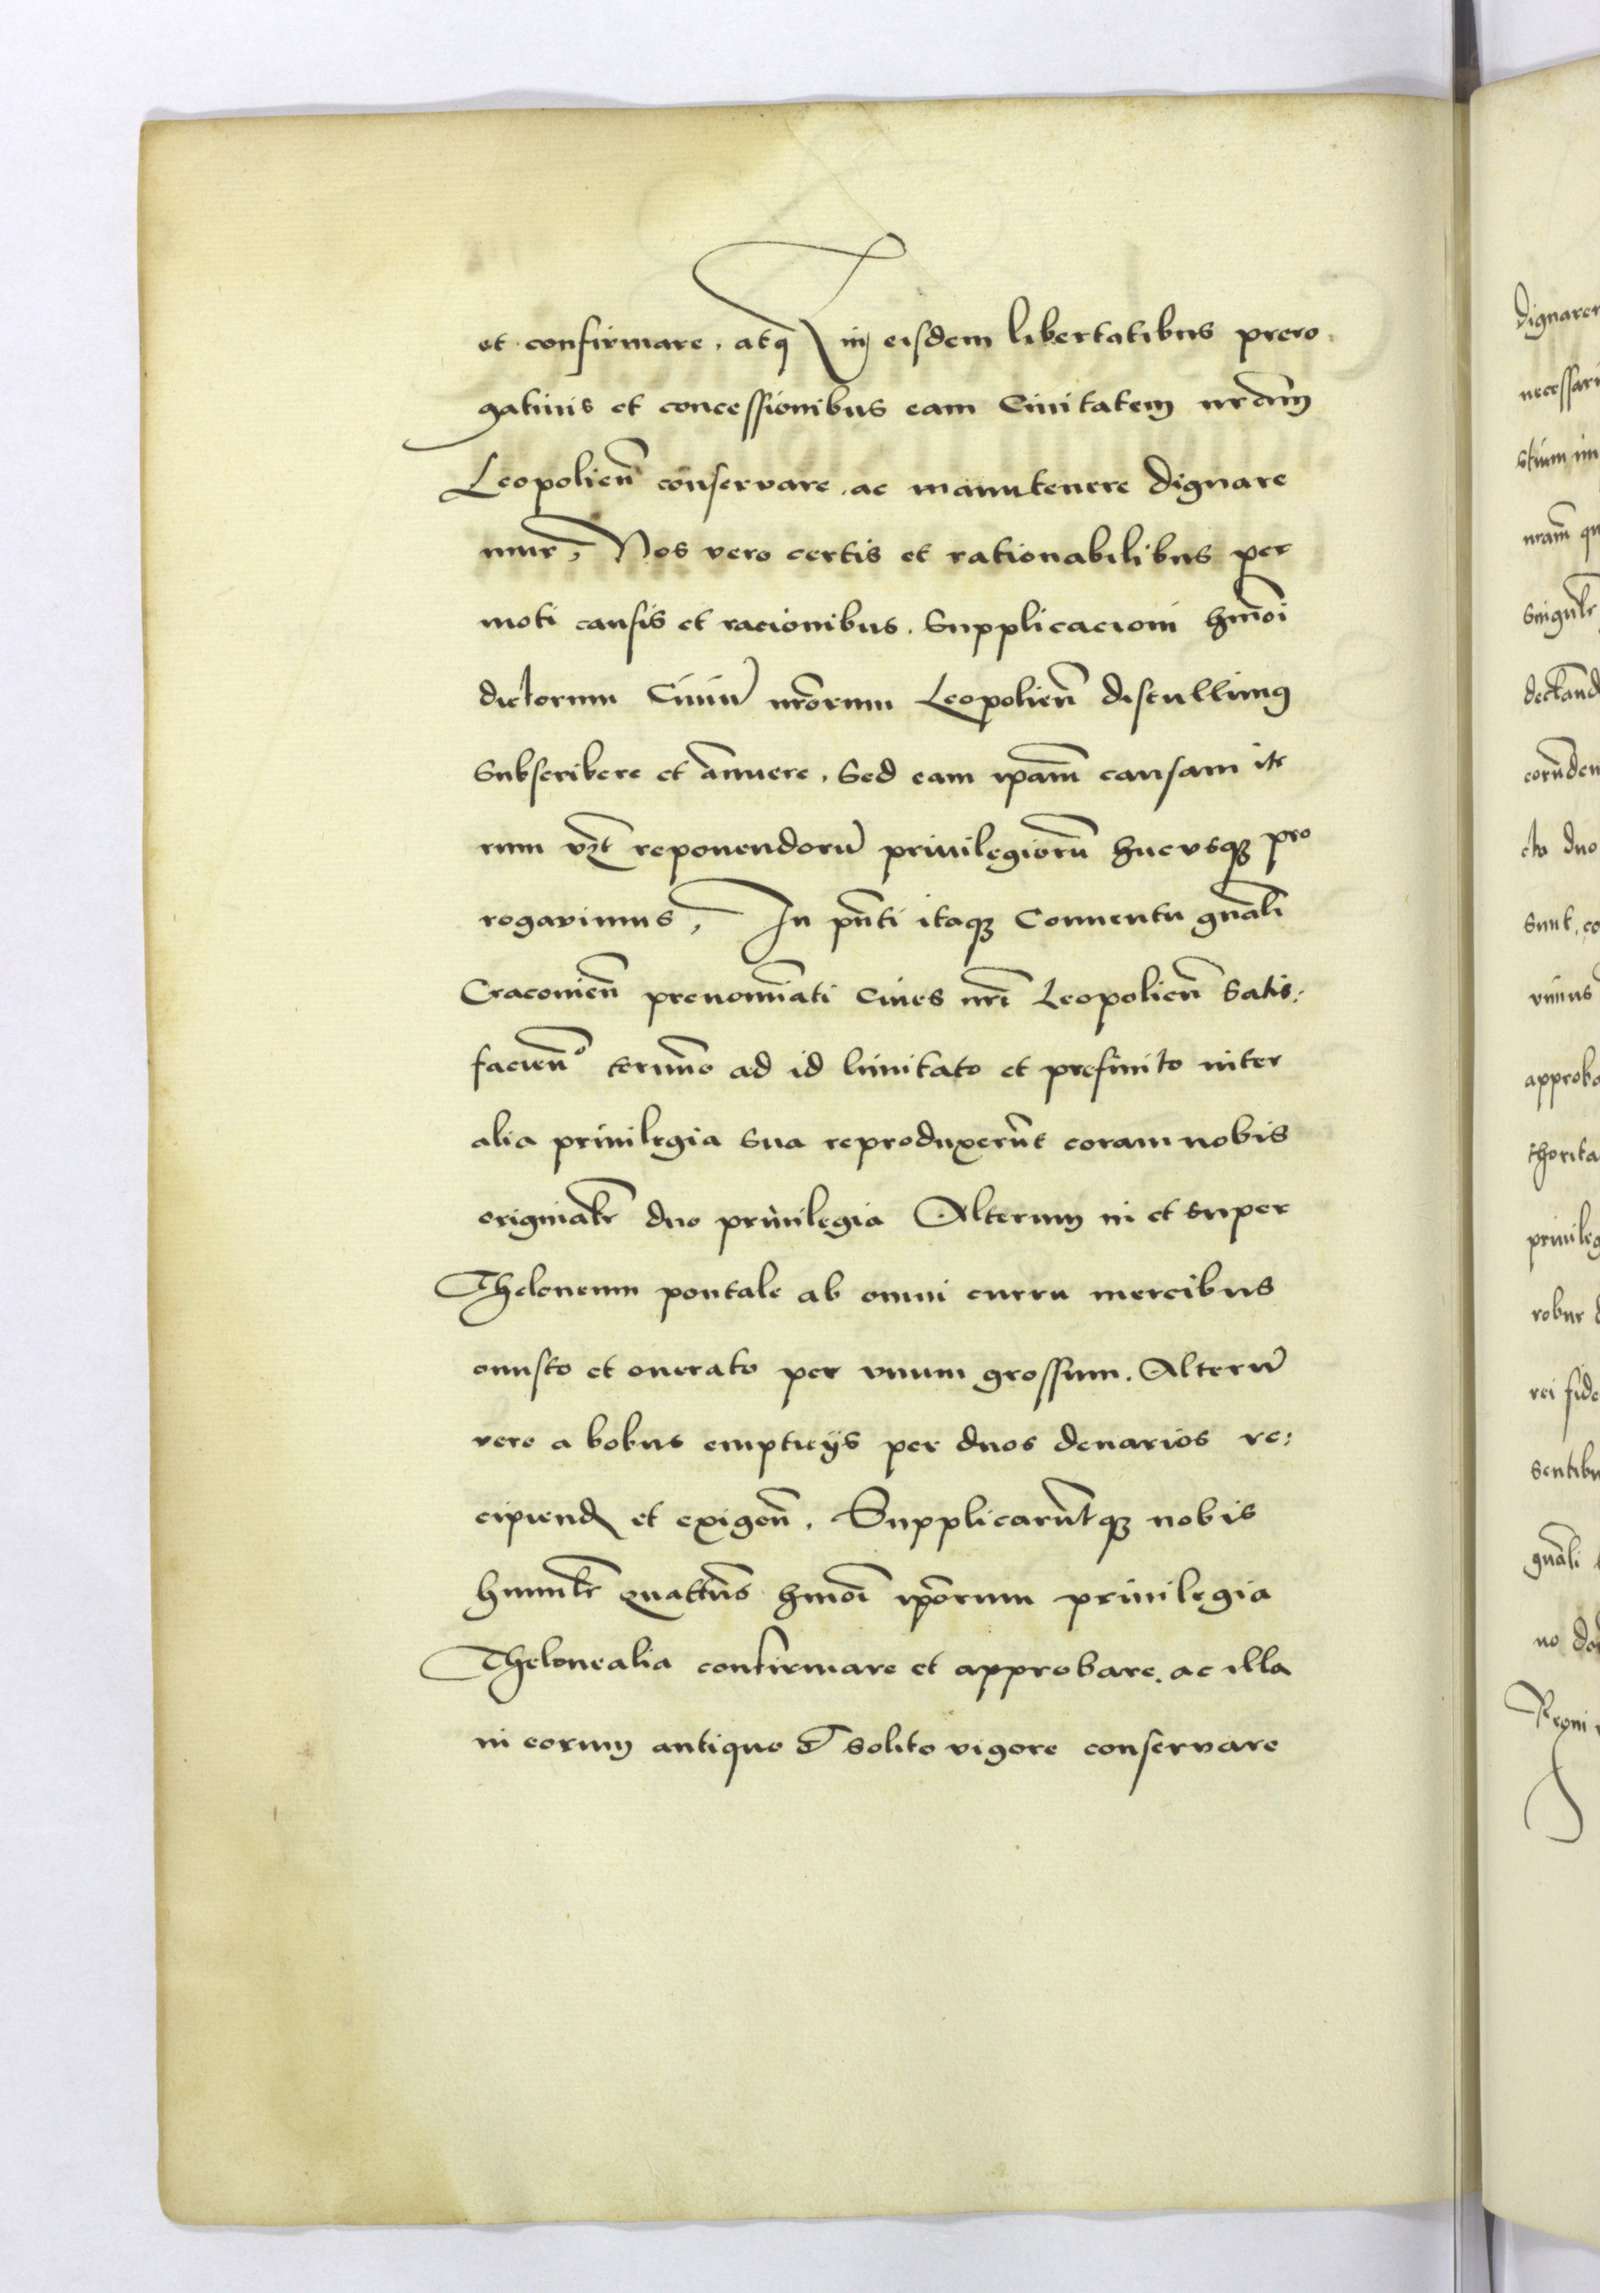 et confirmare, atq in eisdem libertatibus prero
gatiuis et concessionibus eam Ciuitatem nram
Leopolien conservare ac manutenere dignare
mur, Nos vero certis et rationabilibus per
moti causis et racionibus. Supplicacioni hmoi
dictorum Ciuiu nrorum Leopolien distulimus
Subscribere et annuere, Sed eam ipam causam ite
rum vzt reponendoru priuilegioru hucusq pro
rogavimus, In pnti itaq Conuentu gnali
Cracouien prenominati Ciues nri Leopolien Satis:
facien termino ad id limitato et prefinito inter
alia priuilegia Sua reproduxerut coram nobis
originalr duo priuilegia Alterum in et super
Theloneum pontale ab omni curru mercibus
onusto et onerato per vnum grossum. Alteru
vero a bobus empticijs per duos denarios re:
cipiend et exigen. Supplicaruntq nobis
humilr quatenus hmoi iporum priuilegia
Thelonealia confirmare et approbare, ac illa
in eorum antiquo et solito vigore conservare
dignarem
necessari
nram qu
Singulr
declarand
eorundem
cta duo
Sunt, co
vnius
approba
thorita
priuileg
robur d
rei fide
sentibu
gnali
no do
Regni